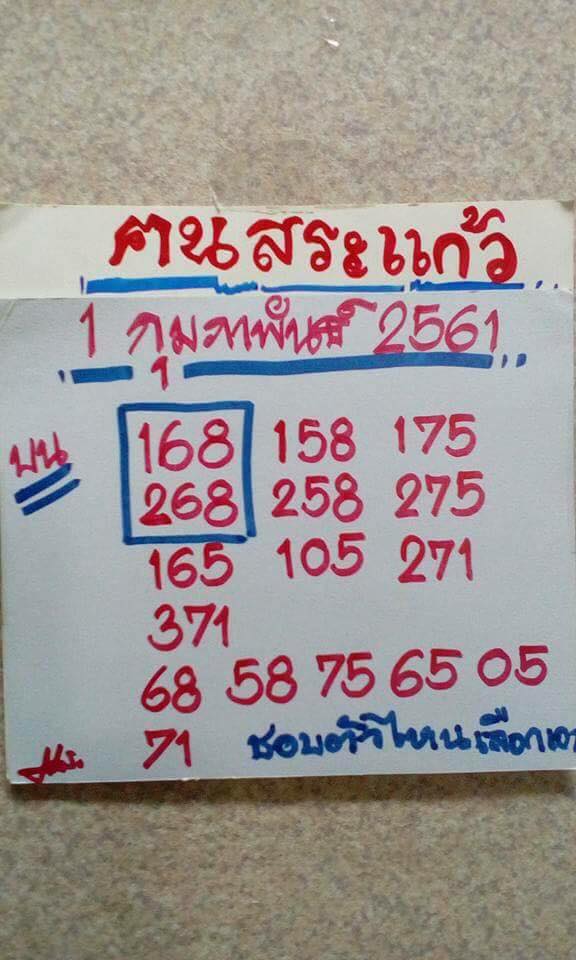 คนสระแก้ว
1 กุมภาพันธ์ 2561
บน
168 158 175
268 258 275
165 105 271
371
68 58 75 65 05
71 ชอบตัวไหนเลือกเอา